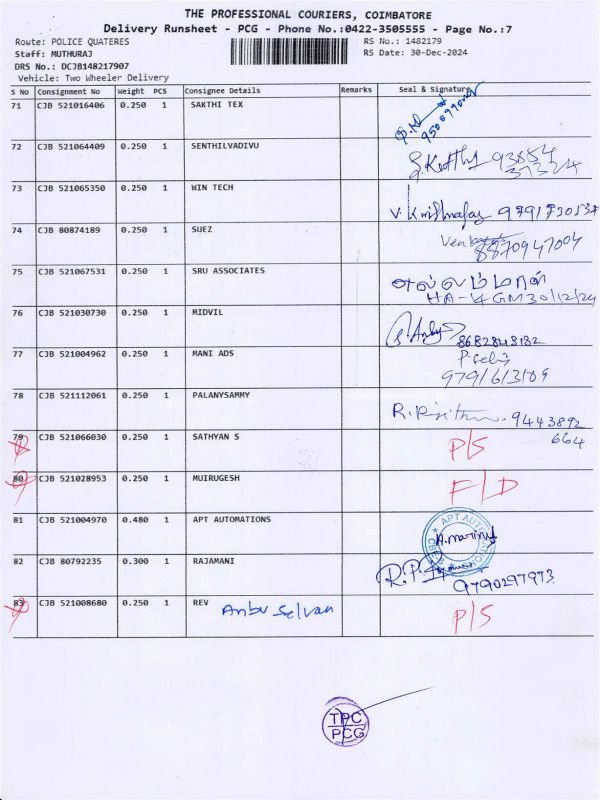 THE PROFESSIONAL COURIERS, COIMBATORE
Delivery Runsheet - PCG - Phone No.:0422-3505555 - Page No.:7
Route: POLICE QUATERES RS No.: 1482179
Staff: MUTHURAJ RS Date: 30-Dec-2024
DRS No.: DCJB148217907
Vehicle: Two Wheeler Delivery
S No Consignment No Weight PCS Consignee Details Remarks Seal & Signature
71 CJB 521016406 0.250 1 SAKTHI TEX
72 CJB 521064409 0.250 1 SENTHILVADIVU 93854
37324
73 CJB 521065350 0.250 1 WIN TECH
74 CJB 80874189 0.250 1 SUEZ 8870947004
75 CJB 521067531 0.250 1 SRU ASSOCIATES
30/12/24
76 CJB 521030730 0.250 1 MIDVIL
77 CJB 521004962 0.250 1 MANI ADS
78 CJB 521112061 0.250 1 PALANYSAMMY 9443892
664
79 CJB 521066030 0.250 1 SATHYAN S P/S
80 CJB 521028953 0.250 1 MUIRUGESH F/D
81 CJB 521004970 0.480 1 APT AUTOMATIONS
82 CJB 80792235 0.300 1 RAJAMANI R.P. 9790297973
83 CJB 521008680 0.250 1 REV Anbu Selvan P/S
TPC
PCG